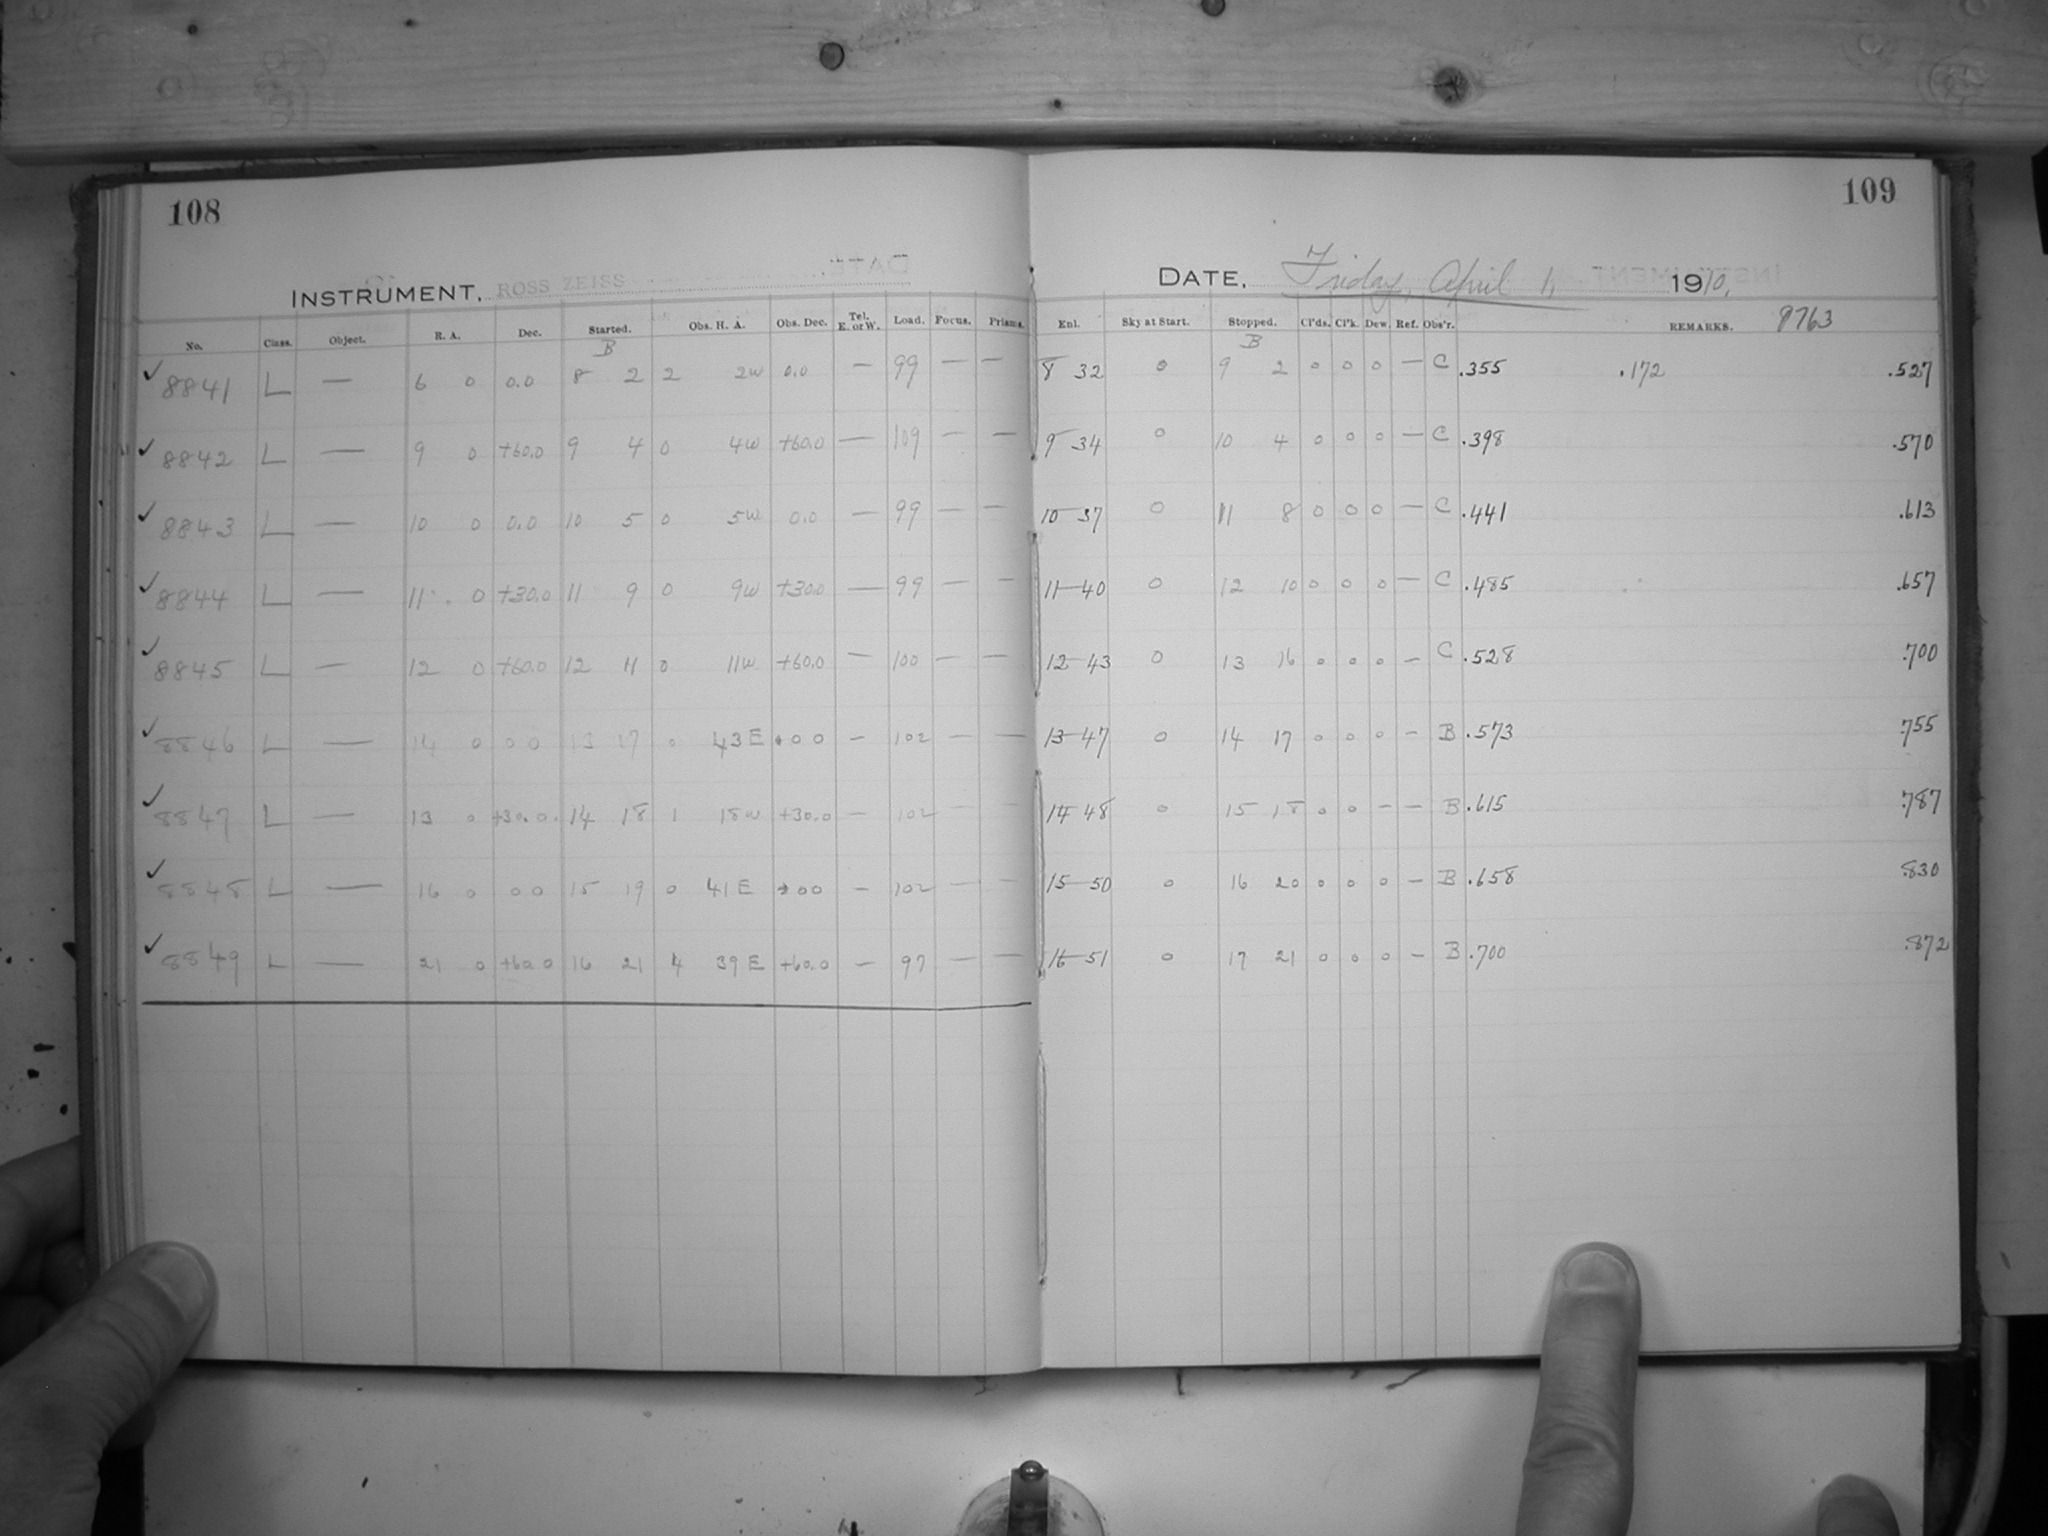 108
109
INSTRUMENT, ROSS ZEISS
DATE, Friday, April 1, 1910,
No. Class. Object. R. A. Dec. Started. Obs. H. A. Obs. Dec. Tel. E. or W. Load. Focus. Prisms. Enl. Sky at Start. Stopped. Cl'ds. Cl'k. Dew. Ref. Obs'r. REMARKS. 8763
B B
✓ 8841 L — 6 0 0.0 8 2 2 2W 0.0 — 99 — — 8 32 0 9 2 0 0 0 — C .355 .172 .527
✓ 8842 L — 9 0 +60.0 9 4 0 4W +60.0 — 109 — — 9 34 0 10 4 0 0 0 — C .398 .570
✓ 8843 L — 10 0 0.0 10 5 0 5W 0.0 — 99 — — 10 37 0 11 8 0 0 0 — C .441 .613
✓ 8844 L — 11 0 +30.0 11 9 0 9W +30.0 — 99 — — 11 40 0 12 10 0 0 0 — C .485 .657
✓ 8845 L — 12 0 +60.0 12 11 0 11W +60.0 — 100 — — 12 43 0 13 16 0 0 0 — C .528 .700
✓ 8846 L — 14 0 0 0 13 17 0 43 E +0 0 — 102 — — 13 47 0 14 17 0 0 0 — B .573 .755
✓ 8847 L — 13 0 +30.0. 14 18 1 18W +30.0 — 102 — — 14 48 0 15 18 0 0 — — B .615 .787
✓ 8848 L — 16 0 0 0 15 19 0 41 E +0 0 — 102 — — 15 50 0 16 20 0 0 0 — B .658 .830
✓ 8849 L — 21 0 +60.0 16 21 4 39 E +60.0 — 97 — — 16 51 0 17 21 0 0 0 — B .700 .872